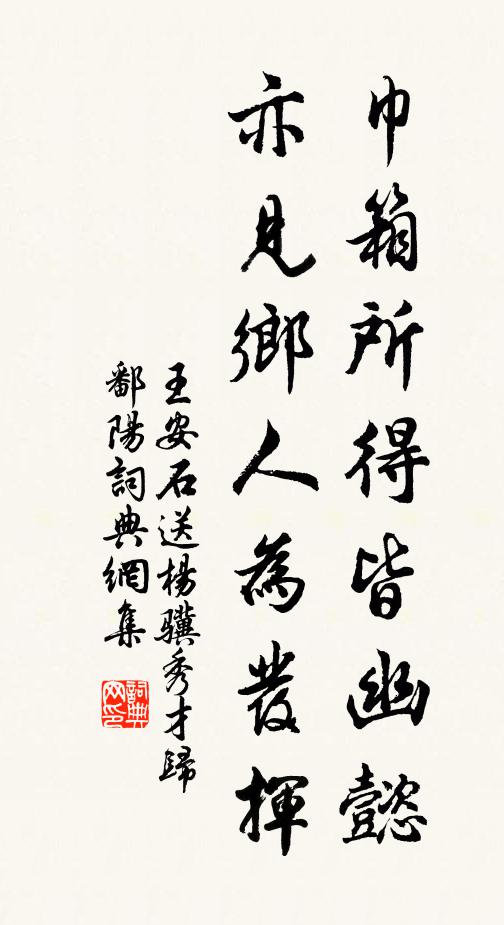 巾箱所得皆幽懿
亦見鄉人為發揮
王安石送楊驥秀才歸
鄱陽詞典網集
詞典
网印